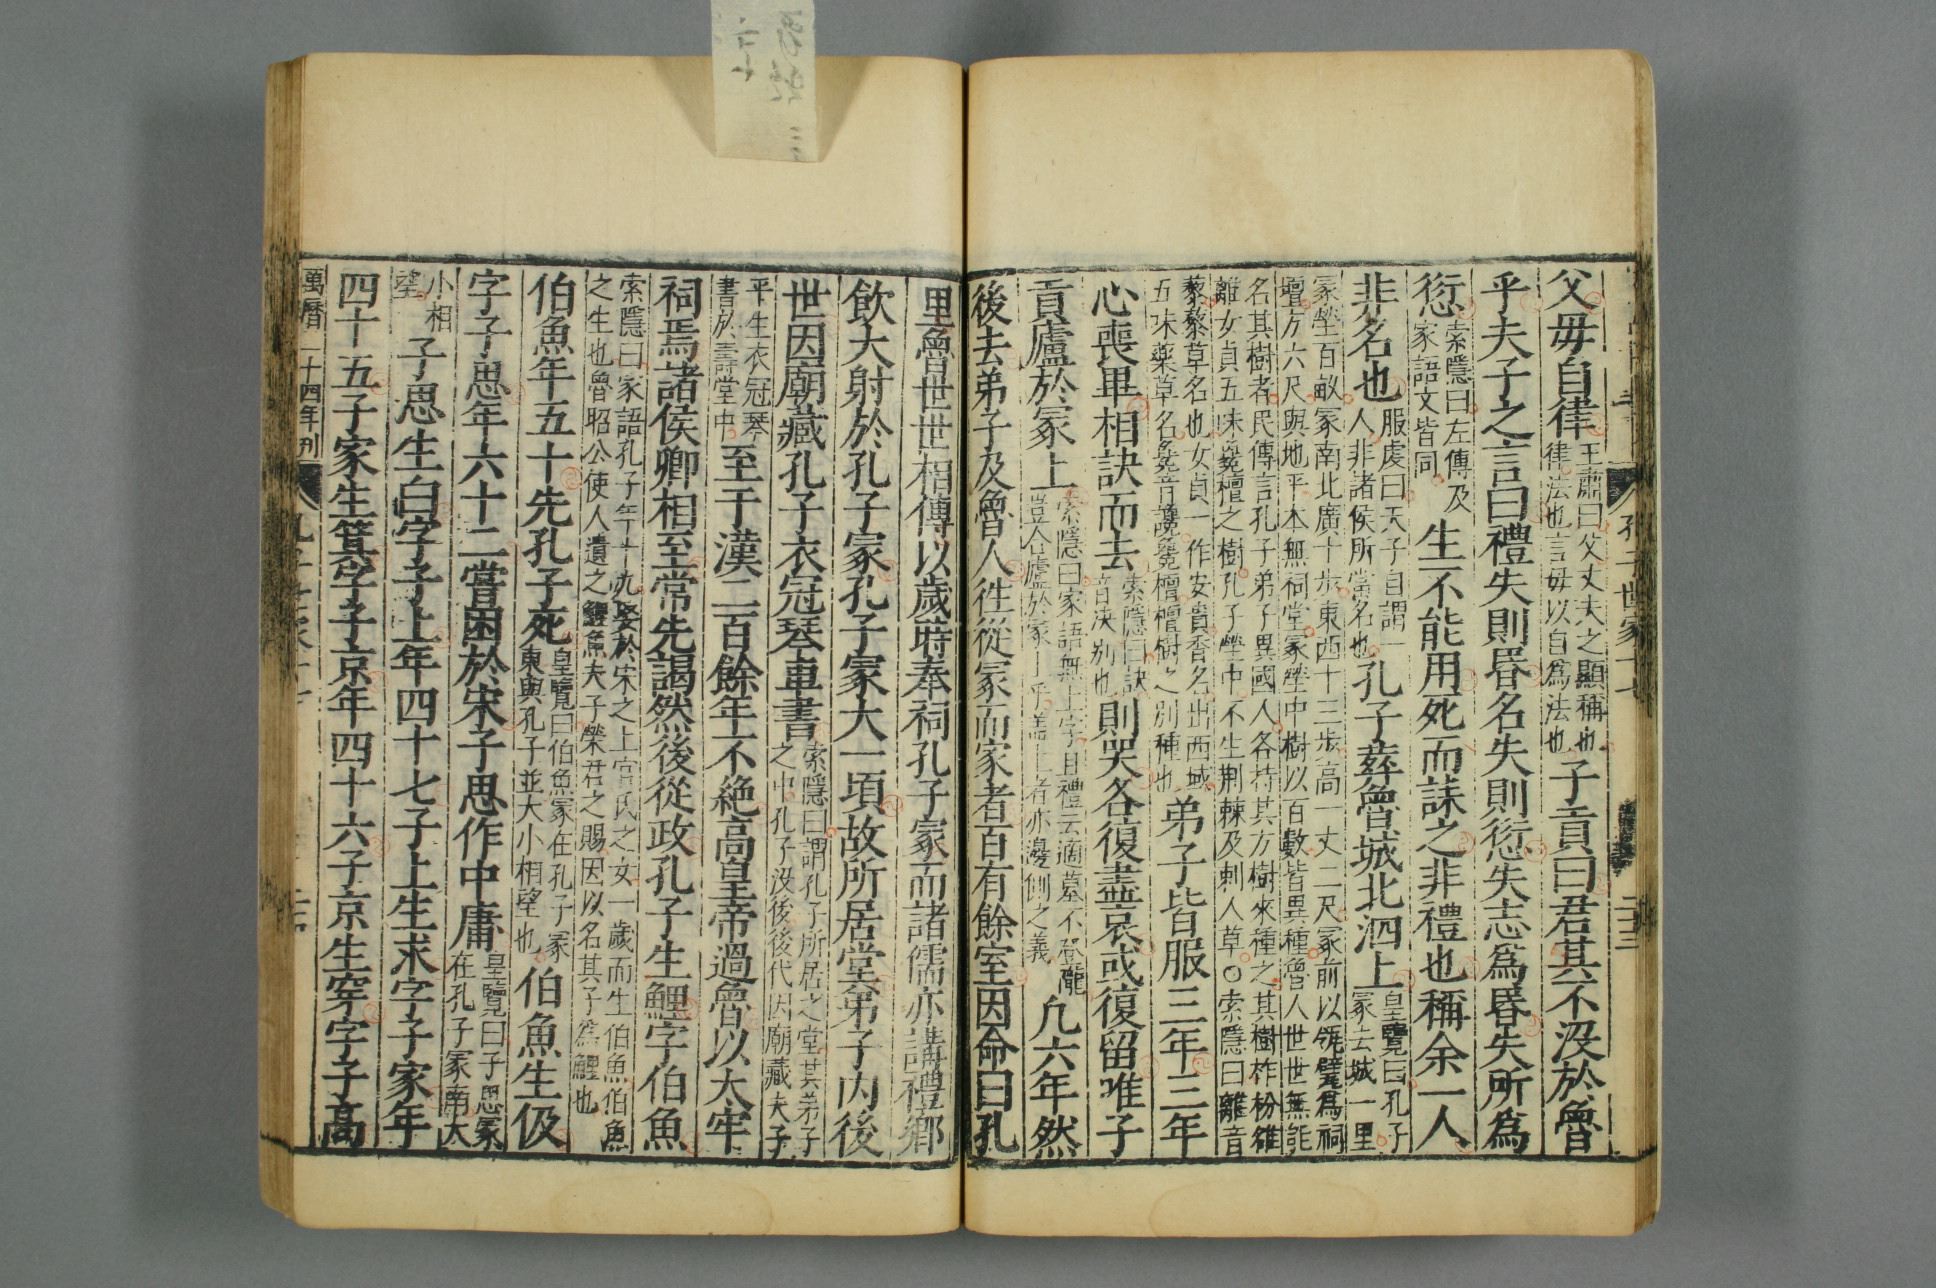 孔子世家十七
二十三
父毋自律王肅曰父丈夫之顯稱也律法也言毋以自爲法也子貢曰君其不沒於魯
乎夫子之言曰禮失則昬名失則愆失志爲昬失所爲
愆索隱曰左傳及家語文皆同生不能用死而誄之非禮也稱余一人
非名也服虔曰天子自謂一人非諸侯所當名也孔子葬魯城北泗上皇覽曰孔子冢去城一里
冢塋百畝冢南北廣十步東西十三步高一丈二尺冢前以瓴甓爲祠
壇方六尺與地平本無祠堂冢塋中樹以百數皆異種魯人世世無能
名其樹者民傳言孔子弟子異國人各持其方樹來種之其樹柞枌雒
離女貞五味毚檀之樹孔子塋中不生荆棘及刺人草○索隱曰離音
藜藜草名也女貞一作安貴香名出西域
五味藥草名毚音讒毚檀檀樹之別種也弟子皆服三年三年
心喪畢相訣而去索隱曰訣音決別也則哭各復盡哀或復留唯子
貢廬於冢上索隱曰家語無上字且禮云適墓不登壠豈合廬於冢上乎蓋上者亦邊側之義凡六年然
後去弟子及魯人往從冢而家者百有餘室因命曰孔
里魯世世相傳以歲時奉祠孔子冢而諸儒亦講禮鄉
飲大射於孔子冢孔子冢大一頃故所居堂弟子內後
世因廟藏孔子衣冠琴車書索隱曰謂孔子所居之堂其弟子之中孔子沒後後代因廟藏夫子
平生衣冠琴書於壽堂中至于漢二百餘年不絶高皇帝過魯以太牢
祠焉諸侯卿相至常先謁然後從政孔子生鯉字伯魚
索隱曰家語孔子年十九娶於宋之上官氏之女一歲而生伯魚伯魚
之生也魯昭公使人遺之鯉魚夫子榮君之賜因以名其子爲鯉也
伯魚年五十先孔子死皇覽曰伯魚冢在孔子冢東與孔子並大小相望也伯魚生伋
字子思年六十二嘗困於宋子思作中庸皇覽曰子思冢在孔子冢南大
小相望子思生白字子上年四十七子上生求字子家年
四十五子家生箕字子京年四十六子京生穿字子高
萬曆二十四年刊